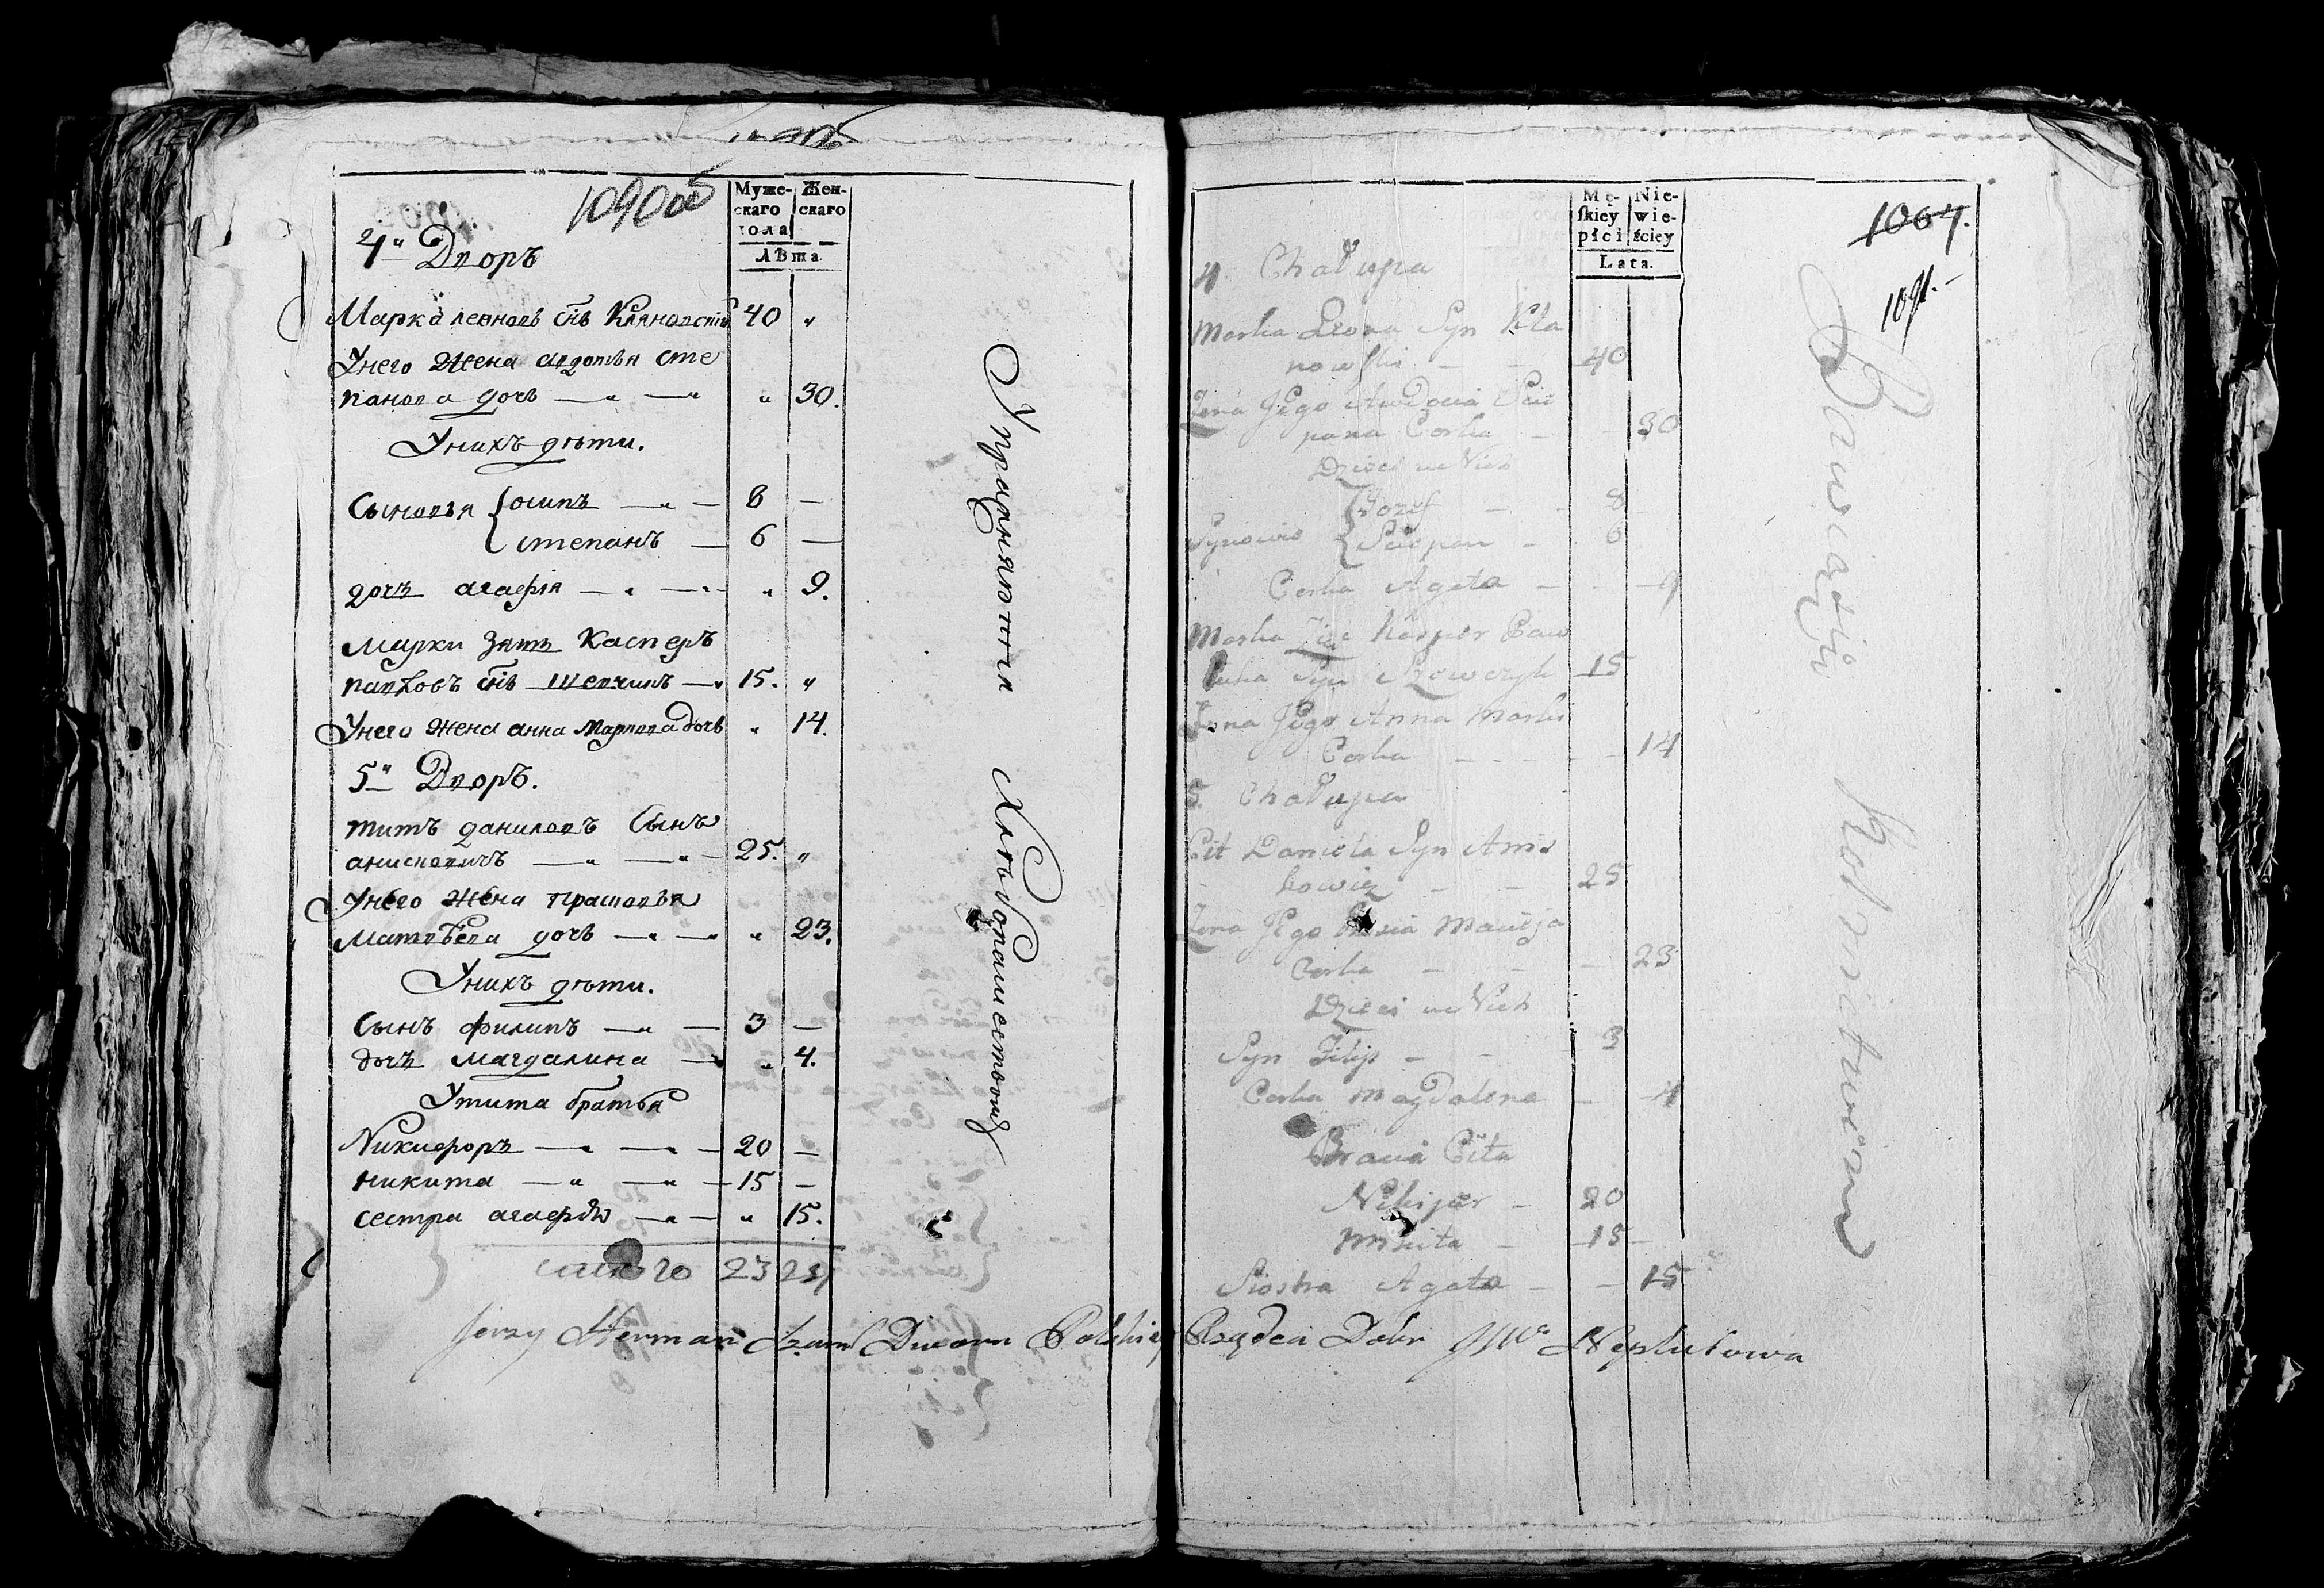 1090об
Муже- Жен-
скаго скаго
пола
Лѣта.
4й Дворъ
Марко леоновъ снъ Кляновскiй 40 "
Унего жена авдотья сте
панова дочь — " — " " 30.
Унихъ дѣти.
Сыновья { осипъ — " — 8 —
{ степанъ — 6 —
дочь агафiя — " — " " 9.
марки зять Касперъ
павловъ снъ шевчикъ — " 15. "
Унего жена анна маркова дочь " 14.
5й Дворъ.
титъ даниловъ сынъ
анисковичъ — " — " — 25. "
Унего жена прасковья
Матвѣева дочь — " — " " 23.
Унихъ дѣти.
Сынъ филипъ — " — 3 —
дочь магдалина — " 4.
Утита братья
Никифоръ — " — " — 20 —
никита — " — " — 15 —
сестра агафiя — " — " 15.
23
Упражняются Хлѣбопашествомъ
Mę- Nie-
ſkiey wie-
płci ściey
Lata.
1064.
1091.
4 Chałupa
Marka Leona Syn Kla
nowſki — — 40
Żona Jego Awdocia Scie
pana Corka — — 30
Dzieci u Nich
Synowie { Jozef — — 8
{ Sciepan — 6
Corka Agata — — 9
Marka Zięc Kasper Paw
luka Syn Szewczyk 15
Żona Jego Anna Marki
Corka — — — 14
5. Chałupa
Cit Daniela Syn Anis
kowicz — — 25
Żona Jego Macieja
Corka — — — 23
Dzieci u Nich
Syn Filip — — 3
Corka Magdalena — 4
Bracia Cita
Nikifer — 20
Mikita — 15 —
Siostra Agata — — 15
Bawią się Rolnictwem
Jerzy Herman Szam Dworu Polskiego Rządca Dobr JW Neplutowa